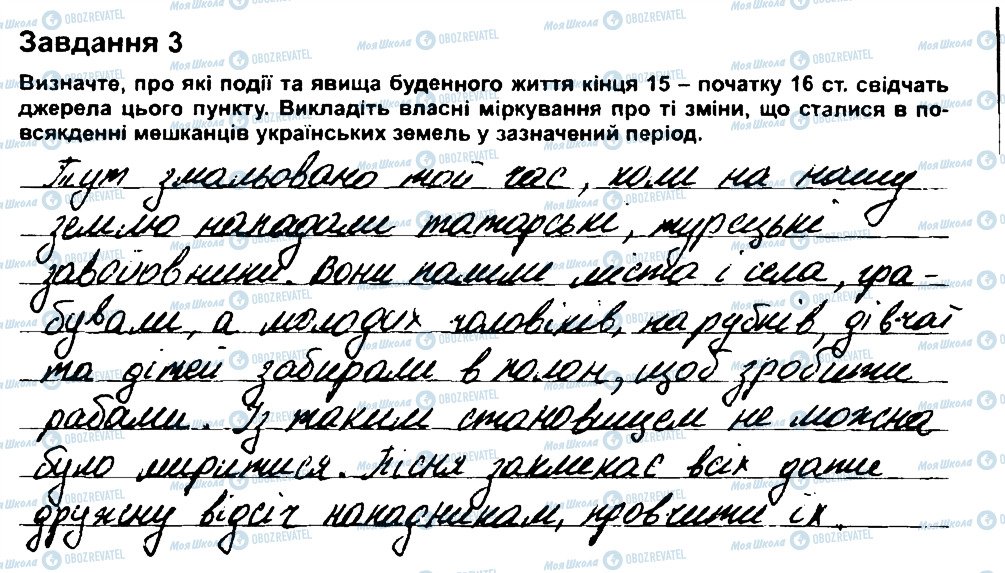 Завдання 3
Визначте, про які події та явища буденного життя кінця 15 – початку 16 ст. свідчать
джерела цього пункту. Викладіть власні міркування про ті зміни, що сталися в по-
всякденні мешканців українських земель у зазначений період.
Тут змальовано той час, коли на нашу
землю нападали татарські, турецькі
завойовники. Вони палили міста і села, гра-
бували, а молодих чоловіків, парубків, дівчат
та дітей забирали в полон, щоб зробити
рабами. Із таким становищем не можна
було миритися. Пісня закликає всіх дати
дружну відсіч нападникам, провчити їх.